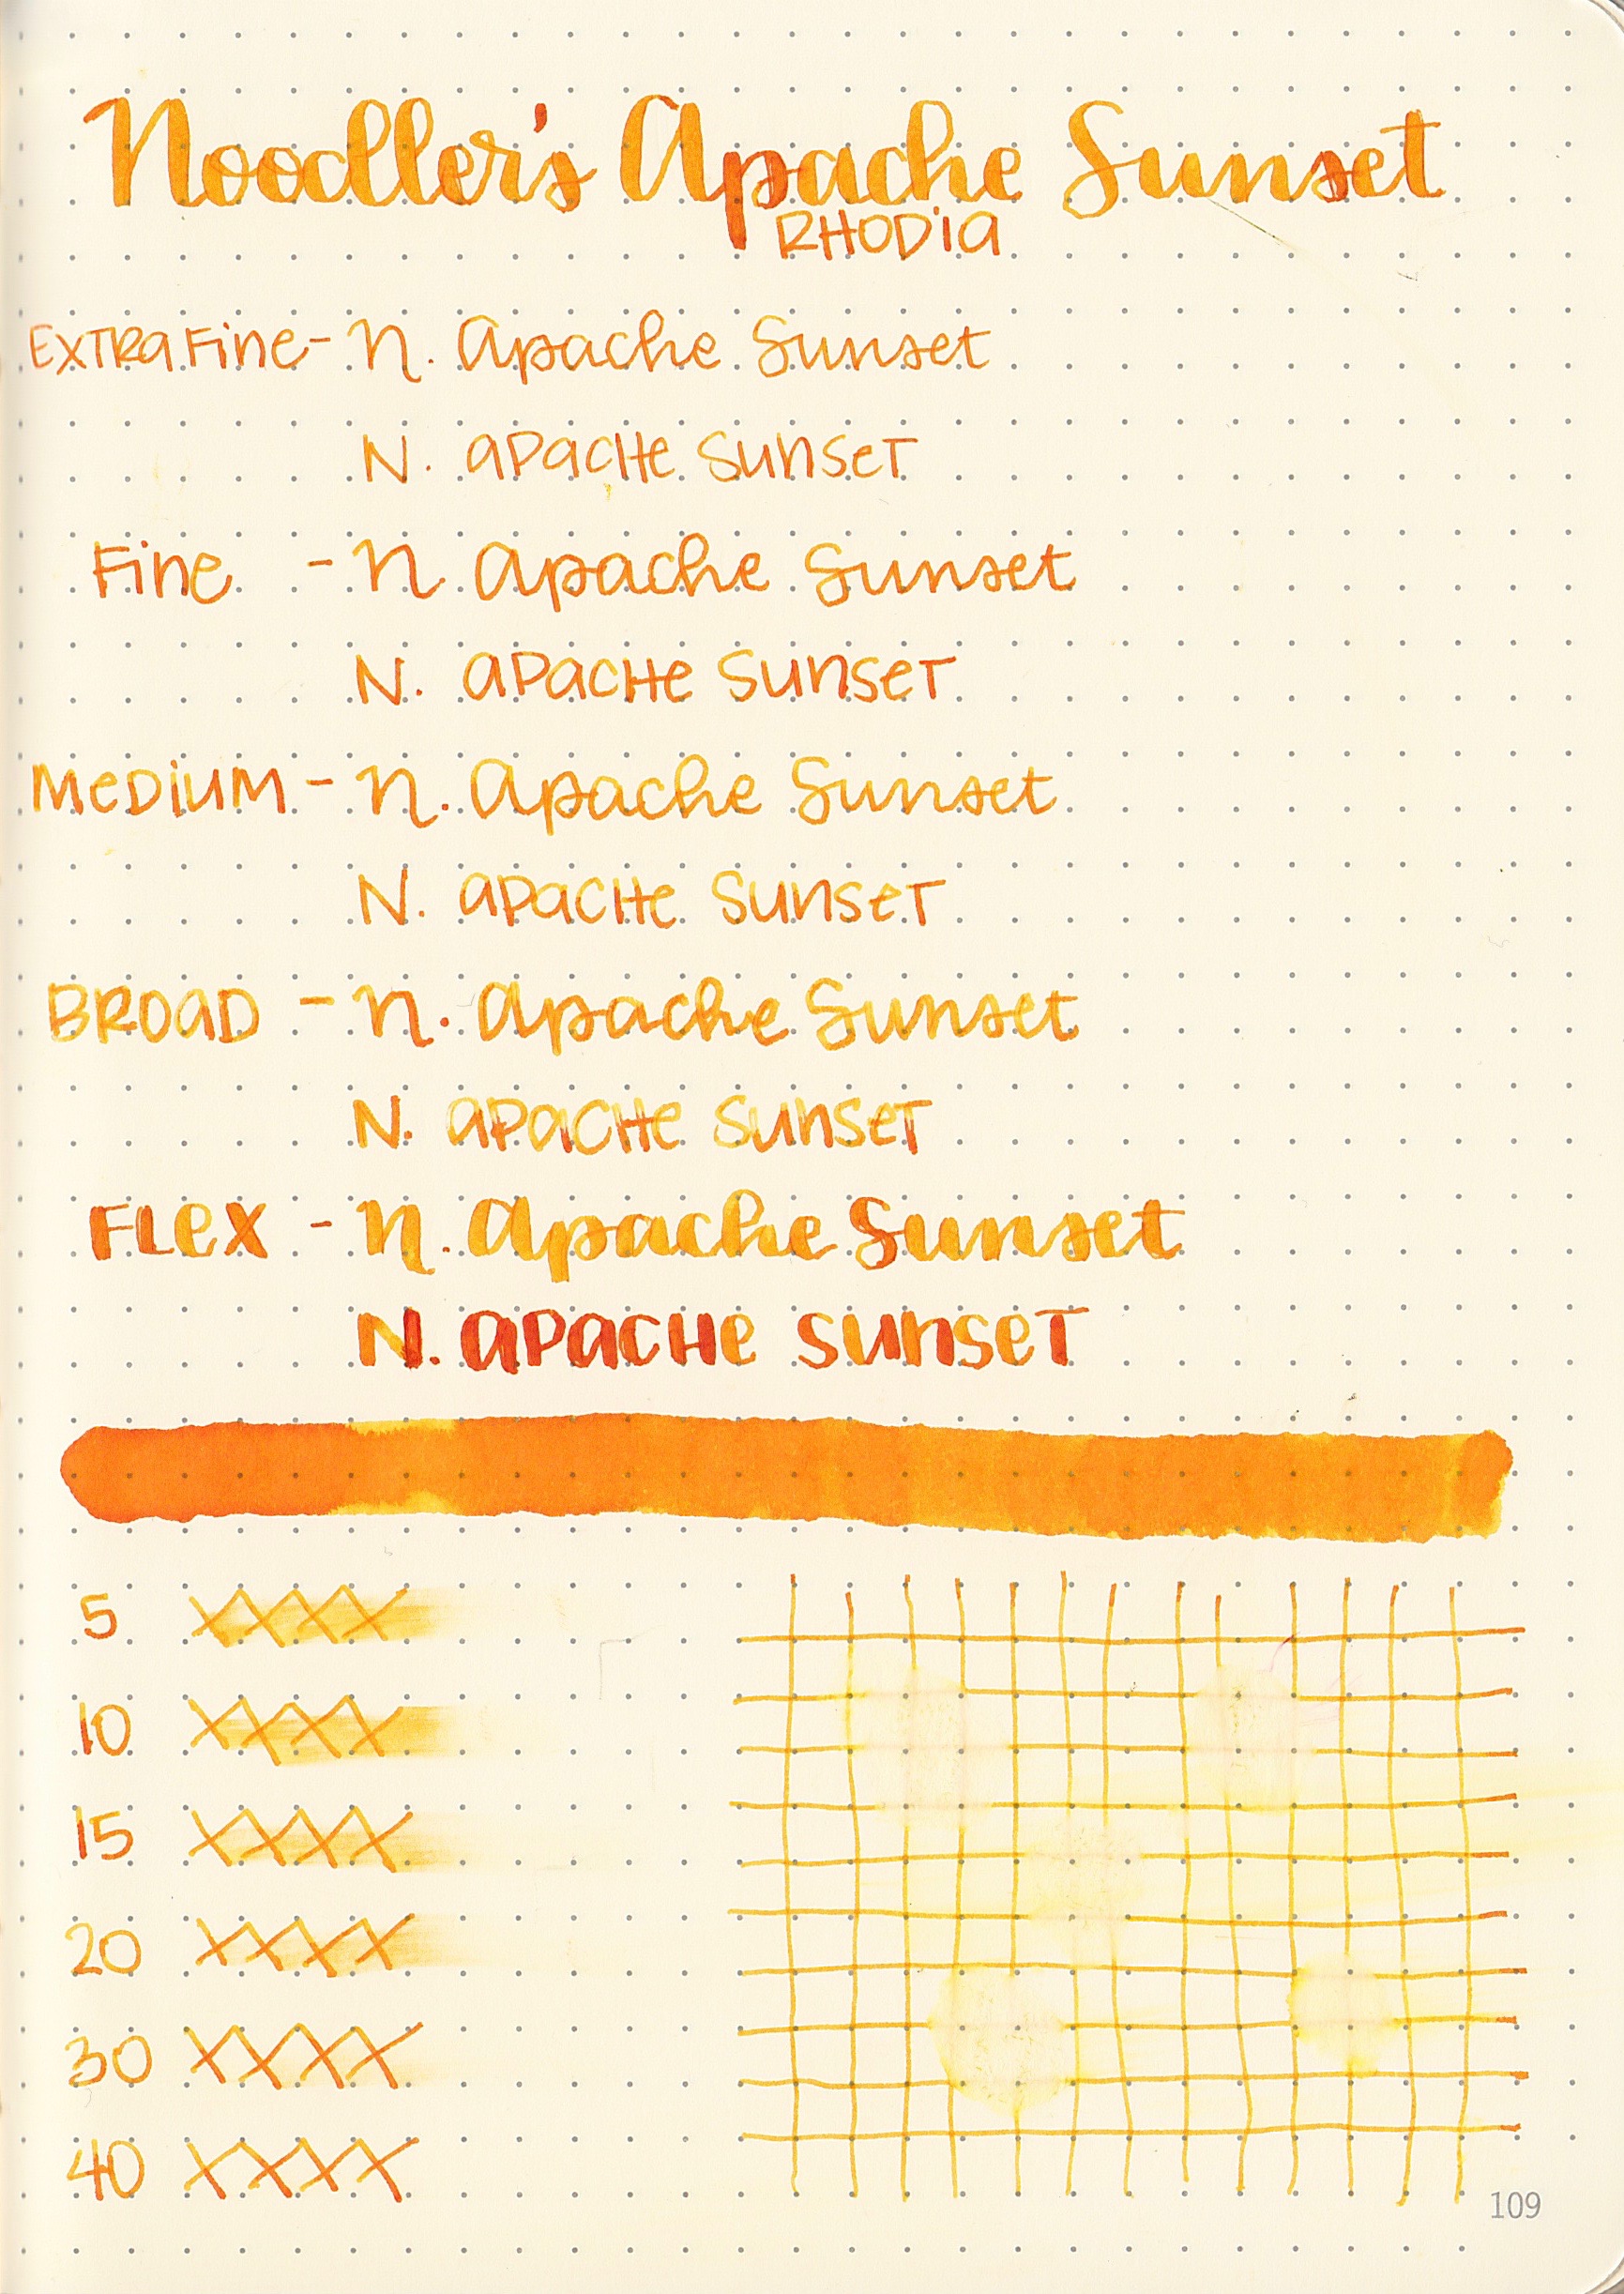 Noodler's Apache Sunset
RHODIA
EXTRA FINE - N. Apache Sunset
N. APACHE SUNSET
FINE - N. Apache Sunset
N. APACHE SUNSET
MEDIUM - N. Apache Sunset
N. APACHE SUNSET
BROAD - N. Apache Sunset
N. APACHE SUNSET
FLEX - N. Apache Sunset
N. APACHE SUNSET
5 XXXX
10 XXXX
15 XXXX
20 XXXX
30 XXXX
40 XXXX
109